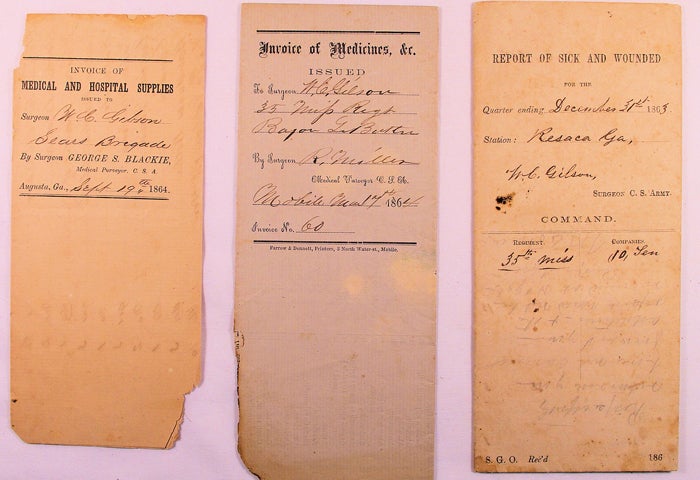 INVOICE OF
MEDICAL AND HOSPITAL SUPPLIES
ISSUED TO
Surgeon W. C. Gibson
Sears Brigade
By Surgeon GEORGE S. BLACKIE,
Medical Purveyor, C. S. A.
Augusta, Ga., Sept 19th 1864.
Invoice of Medicines, &c.
ISSUED
To Surgeon W. C. Gilson
35 Miss Regt
By Surgeon R. Miller
Medical Purveyor C. S. A.
Mobile Mar 7th 1864
Invoice No. 60
Farrow & Dennett, Printers, 3 North Water-st., Mobile.
REPORT OF SICK AND WOUNDED
FOR THE
Quarter ending December 31st 1863.
Station: Resaca Ga,
W. C. Gilson,
SURGEON C. S. ARMY.
COMMAND.
REGIMENT. COMPANIES.
35th Miss 10, Ten
S. G. O. Rec'd 186